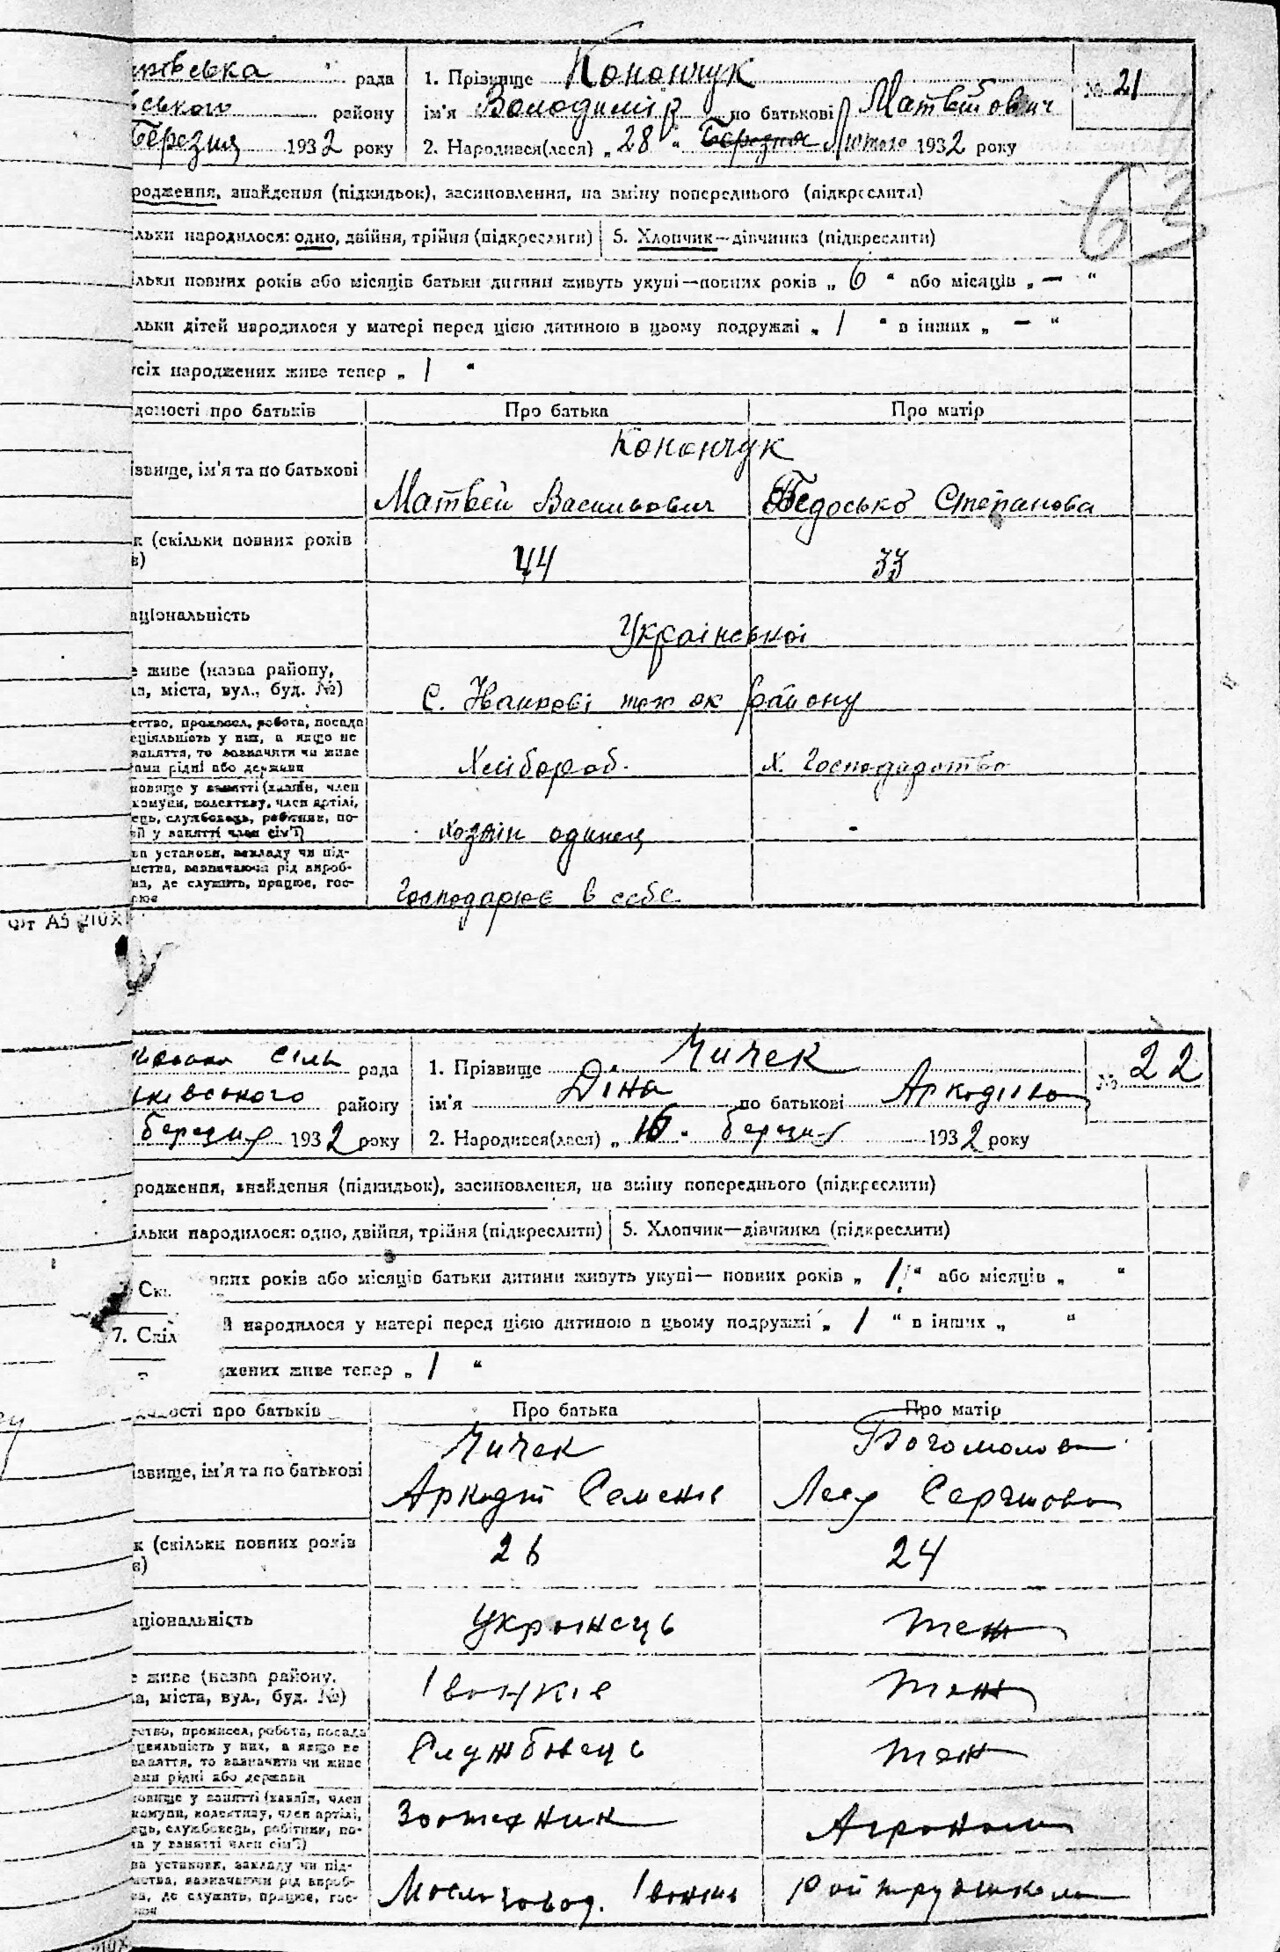 рада 1. Прізвище Конончук № 21
району ім'я Володимір по батькові Матвійович
Березня 1932 року 2. Народився(лася) „ 28 “ Березня Лютого 1932 року
родження, знайдення (підкидьок), засиновлення, на зміну попереднього (підкреслити)
ільки народилося: одно, двійня, трійня (підкреслити) 5. Хлопчик—дівчинка (підкреслити)
ільки повних років або місяців батьки дитини живуть укупі—повних років „ 6 “ або місяців „ — “
ільки дітей народилося у матері перед цією дитиною в цьому подружжі „ 1 “ в інших „ — “
усіх народжених живе тепер „ 1 “
домості про батьків Про батька Про матір
Конончук
ізвище, ім'я та по батькові
Матвей Васильович Федосько Степанова
к (скільки повних років 44 33
в)
аціональність Украінськоі
е живе (назва району,
ла, міста, вул., буд. №) С. Іванкові теж ок району
ество, промисел, робота, посада
еціяльність у них, а якщо не
заняття, то зазначити чи живе Хлібороб. Х. Господарство
ами рідні або держави
новище у занятті (хазяїн, член
комуни, колективу, член артілі,
ець, службовець, робітник, по- хозяін одинец
й у занятті член сім'ї)
ва установи, закладу чи під-
мства, зазначаючи рід вироб-
ва, де служить, працює, гос- Господарює в себе
рює
А5 210X
сіль рада 1. Прізвище Чичек № 22
ківського району ім'я Діна по батькові Аркадіівна
березня 1932 року 2. Народився(лася) „ 16 “ березня 1932 року
родження, знайдення (підкидьок), засиновлення, на зміну попереднього (підкреслити)
ільки народилося: одно, двійня, трійня (підкреслити) 5. Хлопчик—дівчинка (підкреслити)
Ск. вних років або місяців батьки дитини живуть укупі— повних років „ 1 “ або місяців „ “
7. Скіл й народилося у матері перед цією дитиною в цьому подружжі „ 1 “ в інших „ “
жених живе тепер „ 1 “
домості про батьків Про батька Про матір
Чичек Богомолова
ізвище, ім'я та по батькові
Аркадій Семенів Леся Сергиіова
к (скільки повних років 26 24
в)
аціональність Українець теж
е живе (назва району,
ла, міста, вул., буд. №) Іванків теж
ество, промисел, робота, посада
еціяльність у них, а якщо не Службовець теж
заняття, то зазначити чи живе
ами рідні або держави
новище у занятті (хазяїн, член
комуни, колективу, член артілі, Зоотехник Агроном
ець, службовець, робітник, по-
ва у занятті член сім'ї)
ва установи, закладу чи під-
мства, зазначаючи рід вироб-
ва, де служить, працює, гос- Маслозавод. Іванків Райтрудшкола
210X